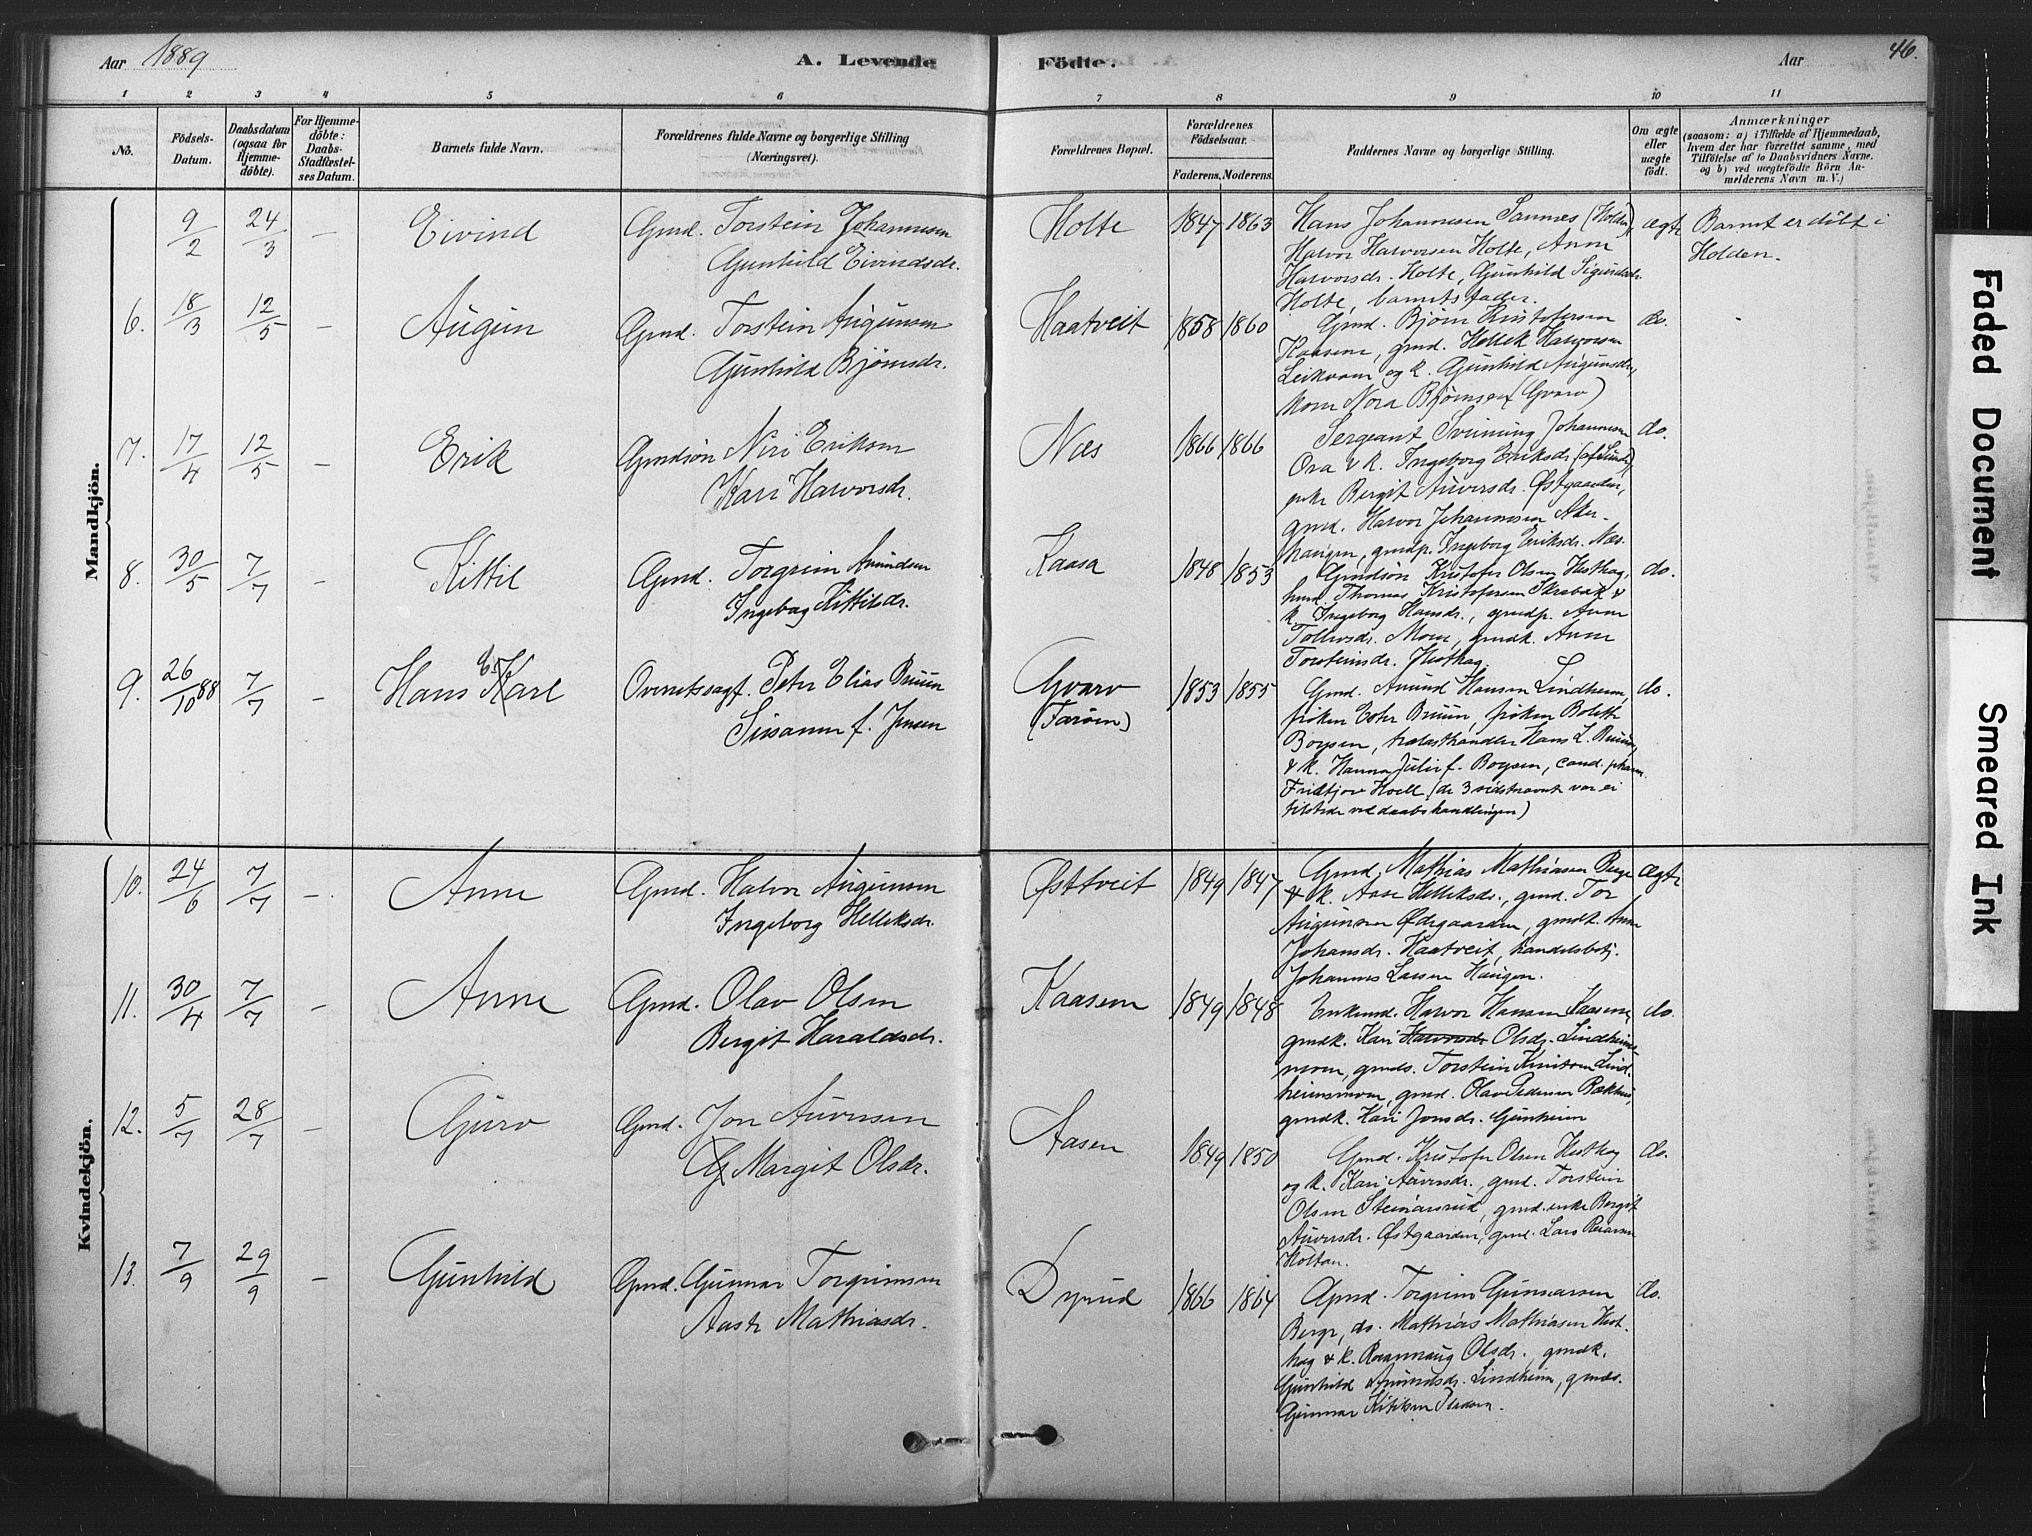 Aar 1889
A. Levende
Födte.
Aar
46.
1 2 3 4 5 6 7 8 9 10 11
No.
Födsels-
Datum.
Daabsdatum
(ogsaa for
Hjemme-
döbte).
For Hjemme-
döbte:
Daabs-
Stadfæstel-
ses Datum.
Barnets fulde Navn.
Forældrenes fulde Navne og borgerlige Stilling
(Næringsvei).
Forældrenes Bopæl.
Forældrenes
Födselsaar.
Faderens. Moderens.
Faddernes Navne og borgerlige Stilling.
Om ægte
eller
uægte
födt.
Anmærkninger
(saasom: a) i Tilfælde af Hjemmedaab,
hvem der har forrettet samme, med
Tilföielse af to Daabsvidners Navne,
og b) ved uægtefödte Börn An-
melderens Navn m. V.)
Mandkjön.
9/2 24/3 — Eivind Gmd. Torstein Johannesen
Gunhild Eivindsdr.
Holte 1847 1863
Hans Johannesen Sannes (Holden),
Halvor Halvorsen Holte, Anne
Halvorsdr. Holte, Gunhild Sigurdsdr.
Holte, barnets fader.
ægte
Barnet er döbt i
Holden.
6. 18/3 12/5 — Augun Gmd. Torstein Augunsen
Gunhild Bjørnsdr.
Haatveit 1858 1860
Gmd. Bjørn Kristofersen
Kaasene, gmd. Hellek Halvorsen
Leikvam og k. Gunhild Augunsdr.,
Nora Bjørnsen (Gvarv)
do.
7. 17/4 12/5 — Erik Gmdsön Niri Eriksen
Kari Halvorsdr.
Næs 1866 1866
Sergeant Svinung Johannesen
Ora & k. Ingeborg Eriksdr.
enke Bergit Auversdr. Østgaarden,
gmd. Halvor Johannesen Aker-
haugen, gmdp. Ingeborg Eriksdr. Næs.
do.
8. 30/5 7/7 — Kittil Gmd. Torgrim Amundsen
Ingebog Kittilsdr.
Kaasa 1848 1853
Gmdsön Kristofer Olsen Hesthag,
husm. Thomas Kristofersen Skrabak &
k. Ingeborg Hansdr., gmdp. Anne
Tollevsdr. Moen, gmdk. Anne
Torsteinsdr. Hesthag.
do.
9. 26/10 88 7/7 — Hans E. Karl Overretssagf. Peter Elias Bruun
Susanne f. Jensen
Gvarv
(Farøen)
1853 1855
Gmd. Amund Hansen Lindheim,
frøken Ester Bruun, frøken Bolette
Boysen, trælasthandler Hans L. Bruun
& k. Hanna Julie f. Boysen, cand. pharm.
Fridtjov Hoell (de 3 sidstnævnte var ei
tilstede ved daabshandlingen)
do.
Kvindekjön.
10. 24/6 7/7 — Anne Gmd. Halvor Augunsen
Ingeborg Helleksdr.
Østtveit 1849 1847
Gmd. Mathias Mathiasen Berge
& k. Aase Helleksdr., gmd. Tor
Augunsen Østgaarden, gmdk. Anne
Johansdr. Haatveit, handelsbetj.
Johannes Larsen Haugen.
Ægte
11. 30/4 7/7 — Anne Gmd. Olav Olsen
Bergit Haraldsdr.
Kaasene 1849 1848
Enkemd. Halvor Hansen Kaasene,
gmdk. Kari Halvorsdr. Olsdr. Lindheims-
moen, gmds. Torstein Knutsen Lind-
heimsmoen, gmd. Olav Pedersen Bakhus,
gmdk. Kari Jonsdr. Gunheim
do.
12. 5/7 28/7 — Guro Gmd. Jon Auversen
G Margit Olsdr.
Aasen 1849 1850
Gmd. Kristofer Olsen Hesthag
og k. Kari Auversdr., gmd. Torstein
Olsen Steinarsrud, gmd. enke Bergit
Auversdr. Østgaarden, gmd. Lars
Holtan.
do.
13. 7/9 29/9 — Gunhild Gmd. Gunnar Torgrimsen
Aaste Mathiasdr.
Dyrud 1866 1864
Gmd. Torgrim Gunnarsen
Berge, do. Mathias Mathiasen Hest-
hag & k. Rannaug Olsdr., gmdk.
Gunhild Amundsdr. Lindheim, gmds.
Gunnar Kittilsen
do.
Faded Document
Smeared Ink